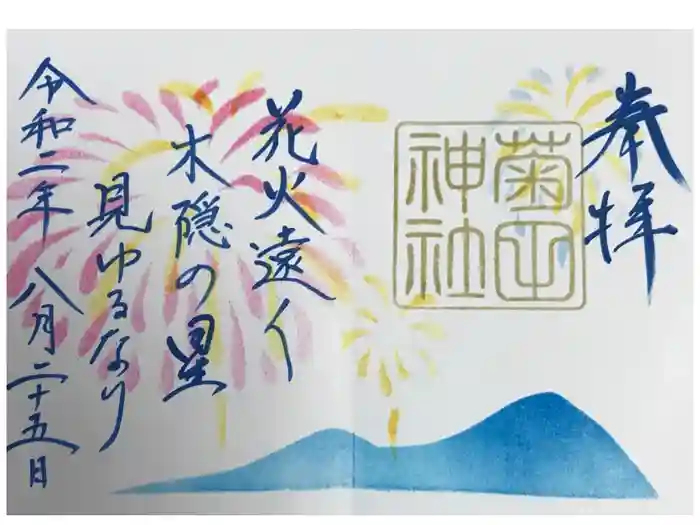 奉拝
菊田
神社
花火遠く
木隠の星
見ゆるなり
令和二年 八月二十五日